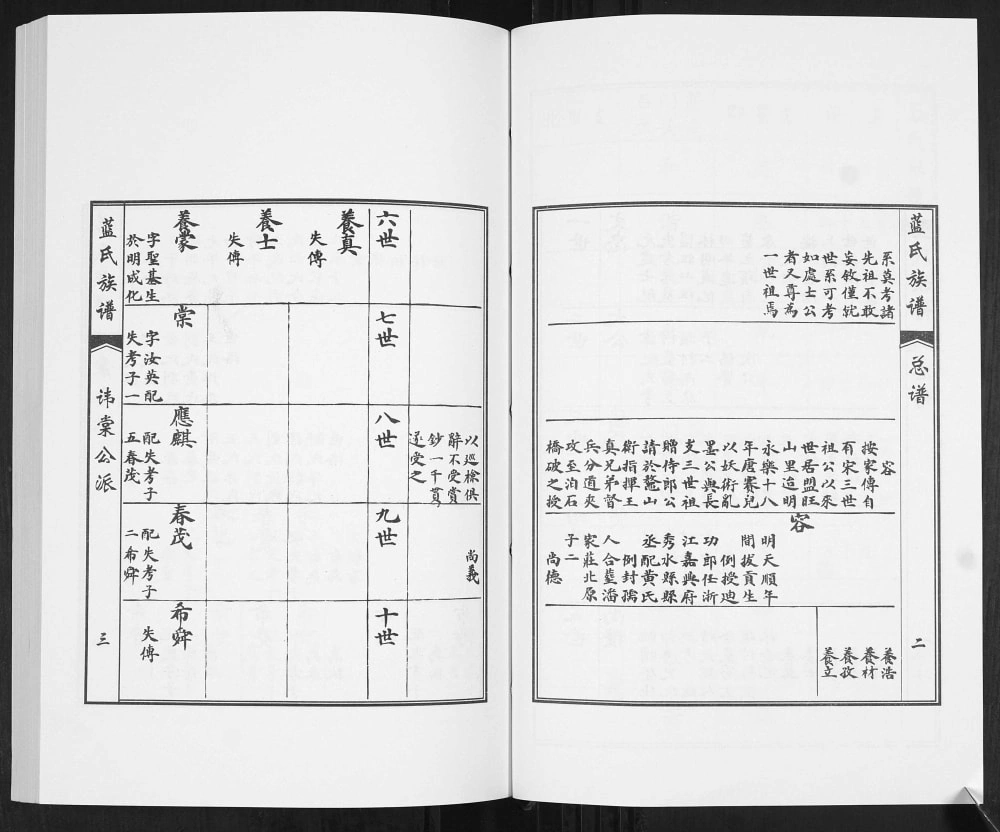 蓝氏族谱
总谱
二
系莫考諸
先祖不敢
妄敘僅就
世系可考
如處士公
者又尊為
一世祖焉
容
按家傳自
有宋三世
祖公以來
世居盟旺
山里迨明
永樂十八
年唐賽兒
以妖術亂
墨公與長
支三世祖
贈侍郎公
請於鰲山
衛指揮王
真兄弟督
兵分道夾
攻至泊石
橋破之授
容
明天順年
間拔貢生
例授迪
功郎任浙
江嘉興府
秀水縣縣
丞配黄氏
例封孺
人合塟潘
家莊北原
子二
尚德
養浩
養材
養孜
養立
以巡檢俱
辭不受賞
鈔一千貫
遂受之
尚義
六世
七世
八世
九世
十世
養真
失傳
養士
失傳
養蒙
字聖基生
於明成化
棠
字汝英配
失考子一
應麒
配失考子
五春茂
春茂
配失考子
二希舜
希舜
失傳
蓝氏族谱
讳棠公派
三